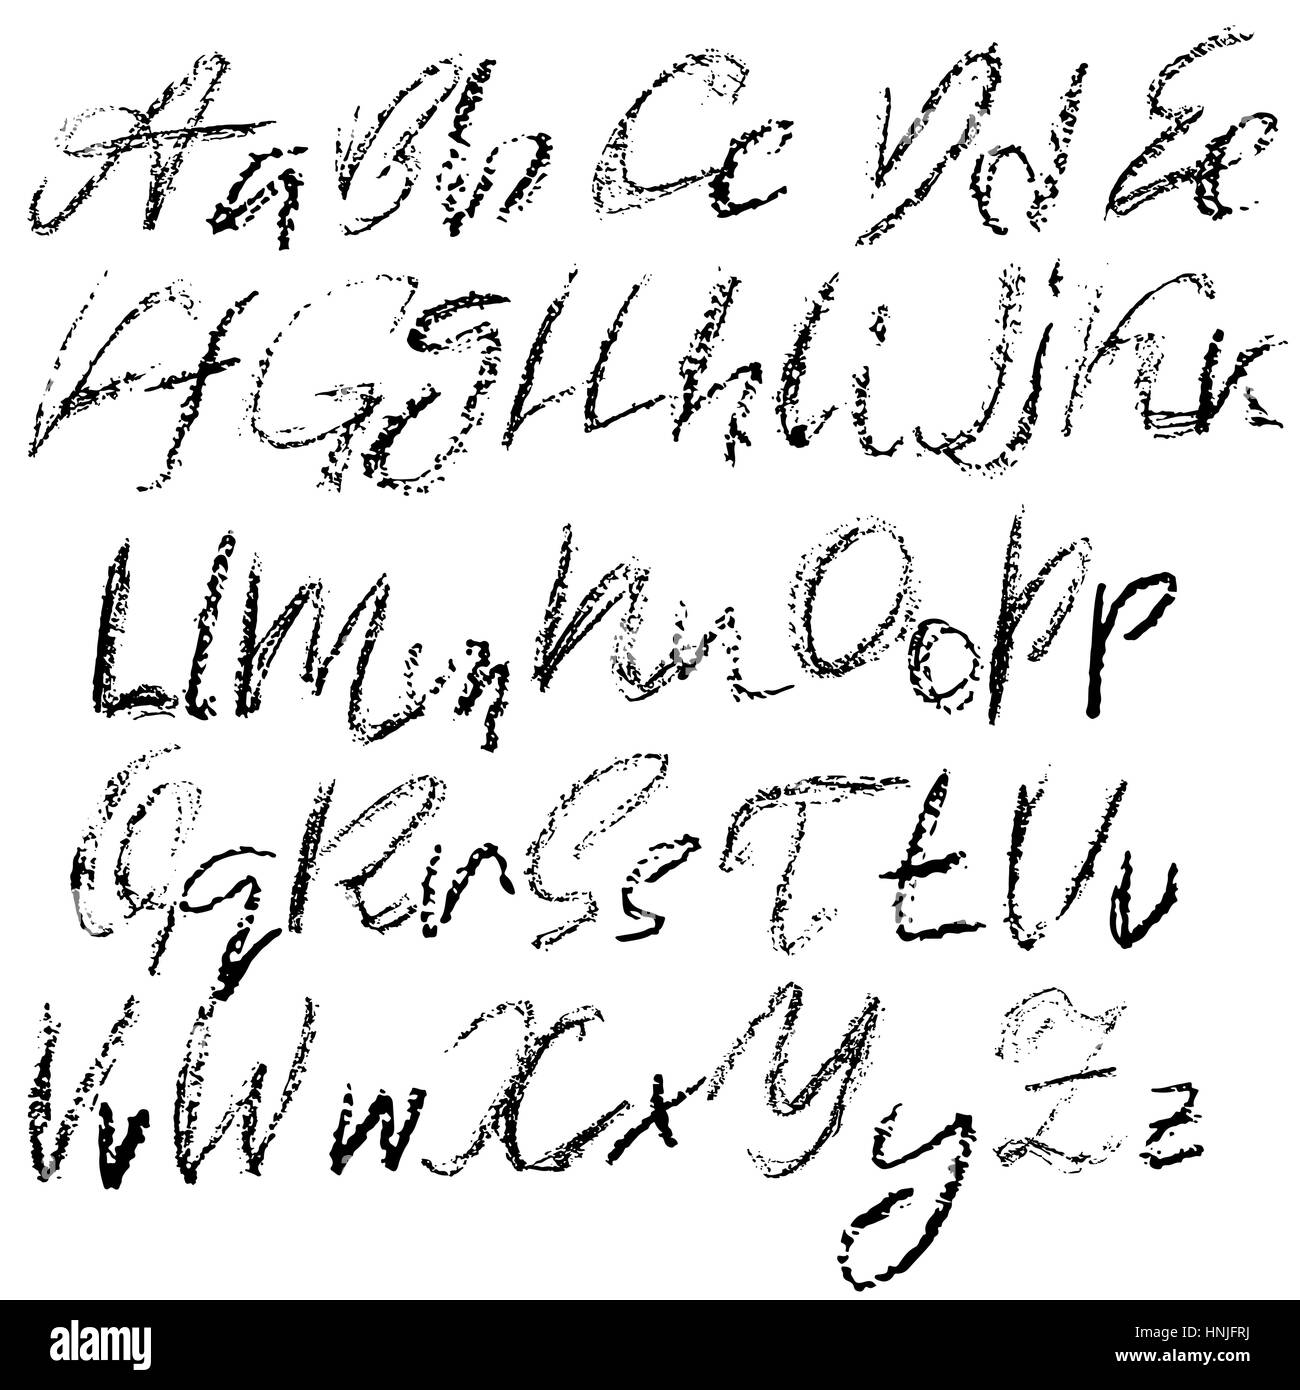 Aa Bb Cc Dd Ee
Ff Gg Hh Ii Jj Kk
Ll Mm Nn Oo Pp
Qq Rr Ss Tt Uu
Vv Ww Xx Yy Zz
alamy
Image ID: HNJFRJ
www.alamy.com